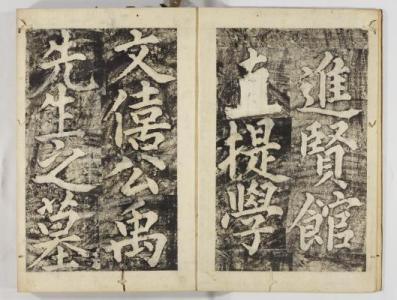 進賢館
直提學
文僖公禹
先生之墓